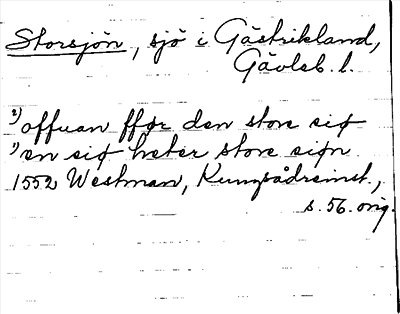 Storsjön, sjö i Gästrikland,
Gävleb. l.
2) offuan ffør den store siø
1) en siø heter store siøn
1552 Westman, Kungsådreinst.,
s. 56. orig.